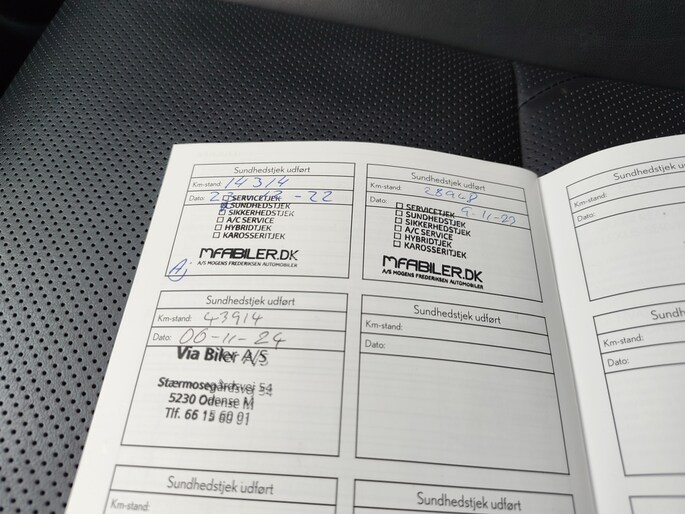 Sundhedstjek udført
Km-stand: 14314
Dato: 22-12-22
SERVICETJEK
SUNDHEDSTJEK
SIKKERHEDSTJEK
A/C SERVICE
HYBRIDTJEK
KAROSSERITJEK
MFABILER.DK
A/S MOGENS FREDERIKSEN AUTOMOBILER
Sundhedstjek udført
Km-stand:
Dato:
SERVICETJEK
SUNDHEDSTJEK
SIKKERHEDSTJEK
A/C SERVICE
HYBRIDTJEK
KAROSSERITJEK
MFABILER.DK
A/S MOGENS FREDERIKSEN AUTOMOBILER
Sundhedstjek udført
Km-stand: 43914
Dato: 06-11-24
Via Biler A/S
Stærmosegårdsvej 54
5230 Odense M
Tlf. 66 15 60 01
Sundhedstjek udført
Km-stand:
Dato:
Sundhedstjek udført
Km-stand:
Sundhedstjek udført
Km-stand:
Dato:
Km-stand:
Dato: